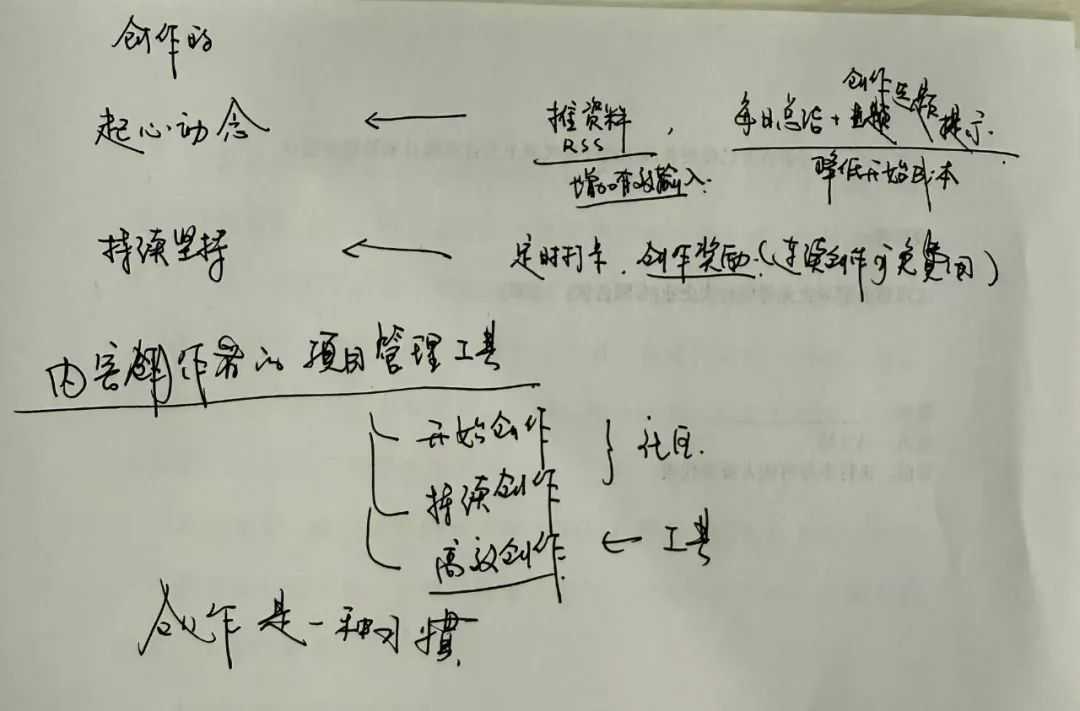 创作的
起心动念 ← 推资料, 每日总结+创作选题提示.
RSS
增加有效输入. 降低开始成本
持续坚持 ← 定时打卡、创作奖励.(连续创作可免费用)
内容创作者的项目管理工具
开始创作 } 社区.
持续创作
高效创作 ← 工具
创作是一种习惯